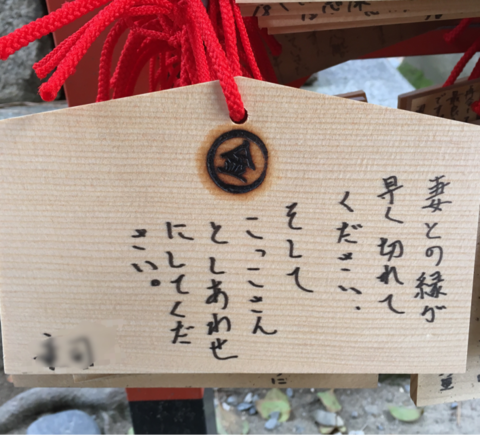 妻との縁が
早く切れて
ください、
そして
こっこさん
としあわせ
にしてくだ
さい。